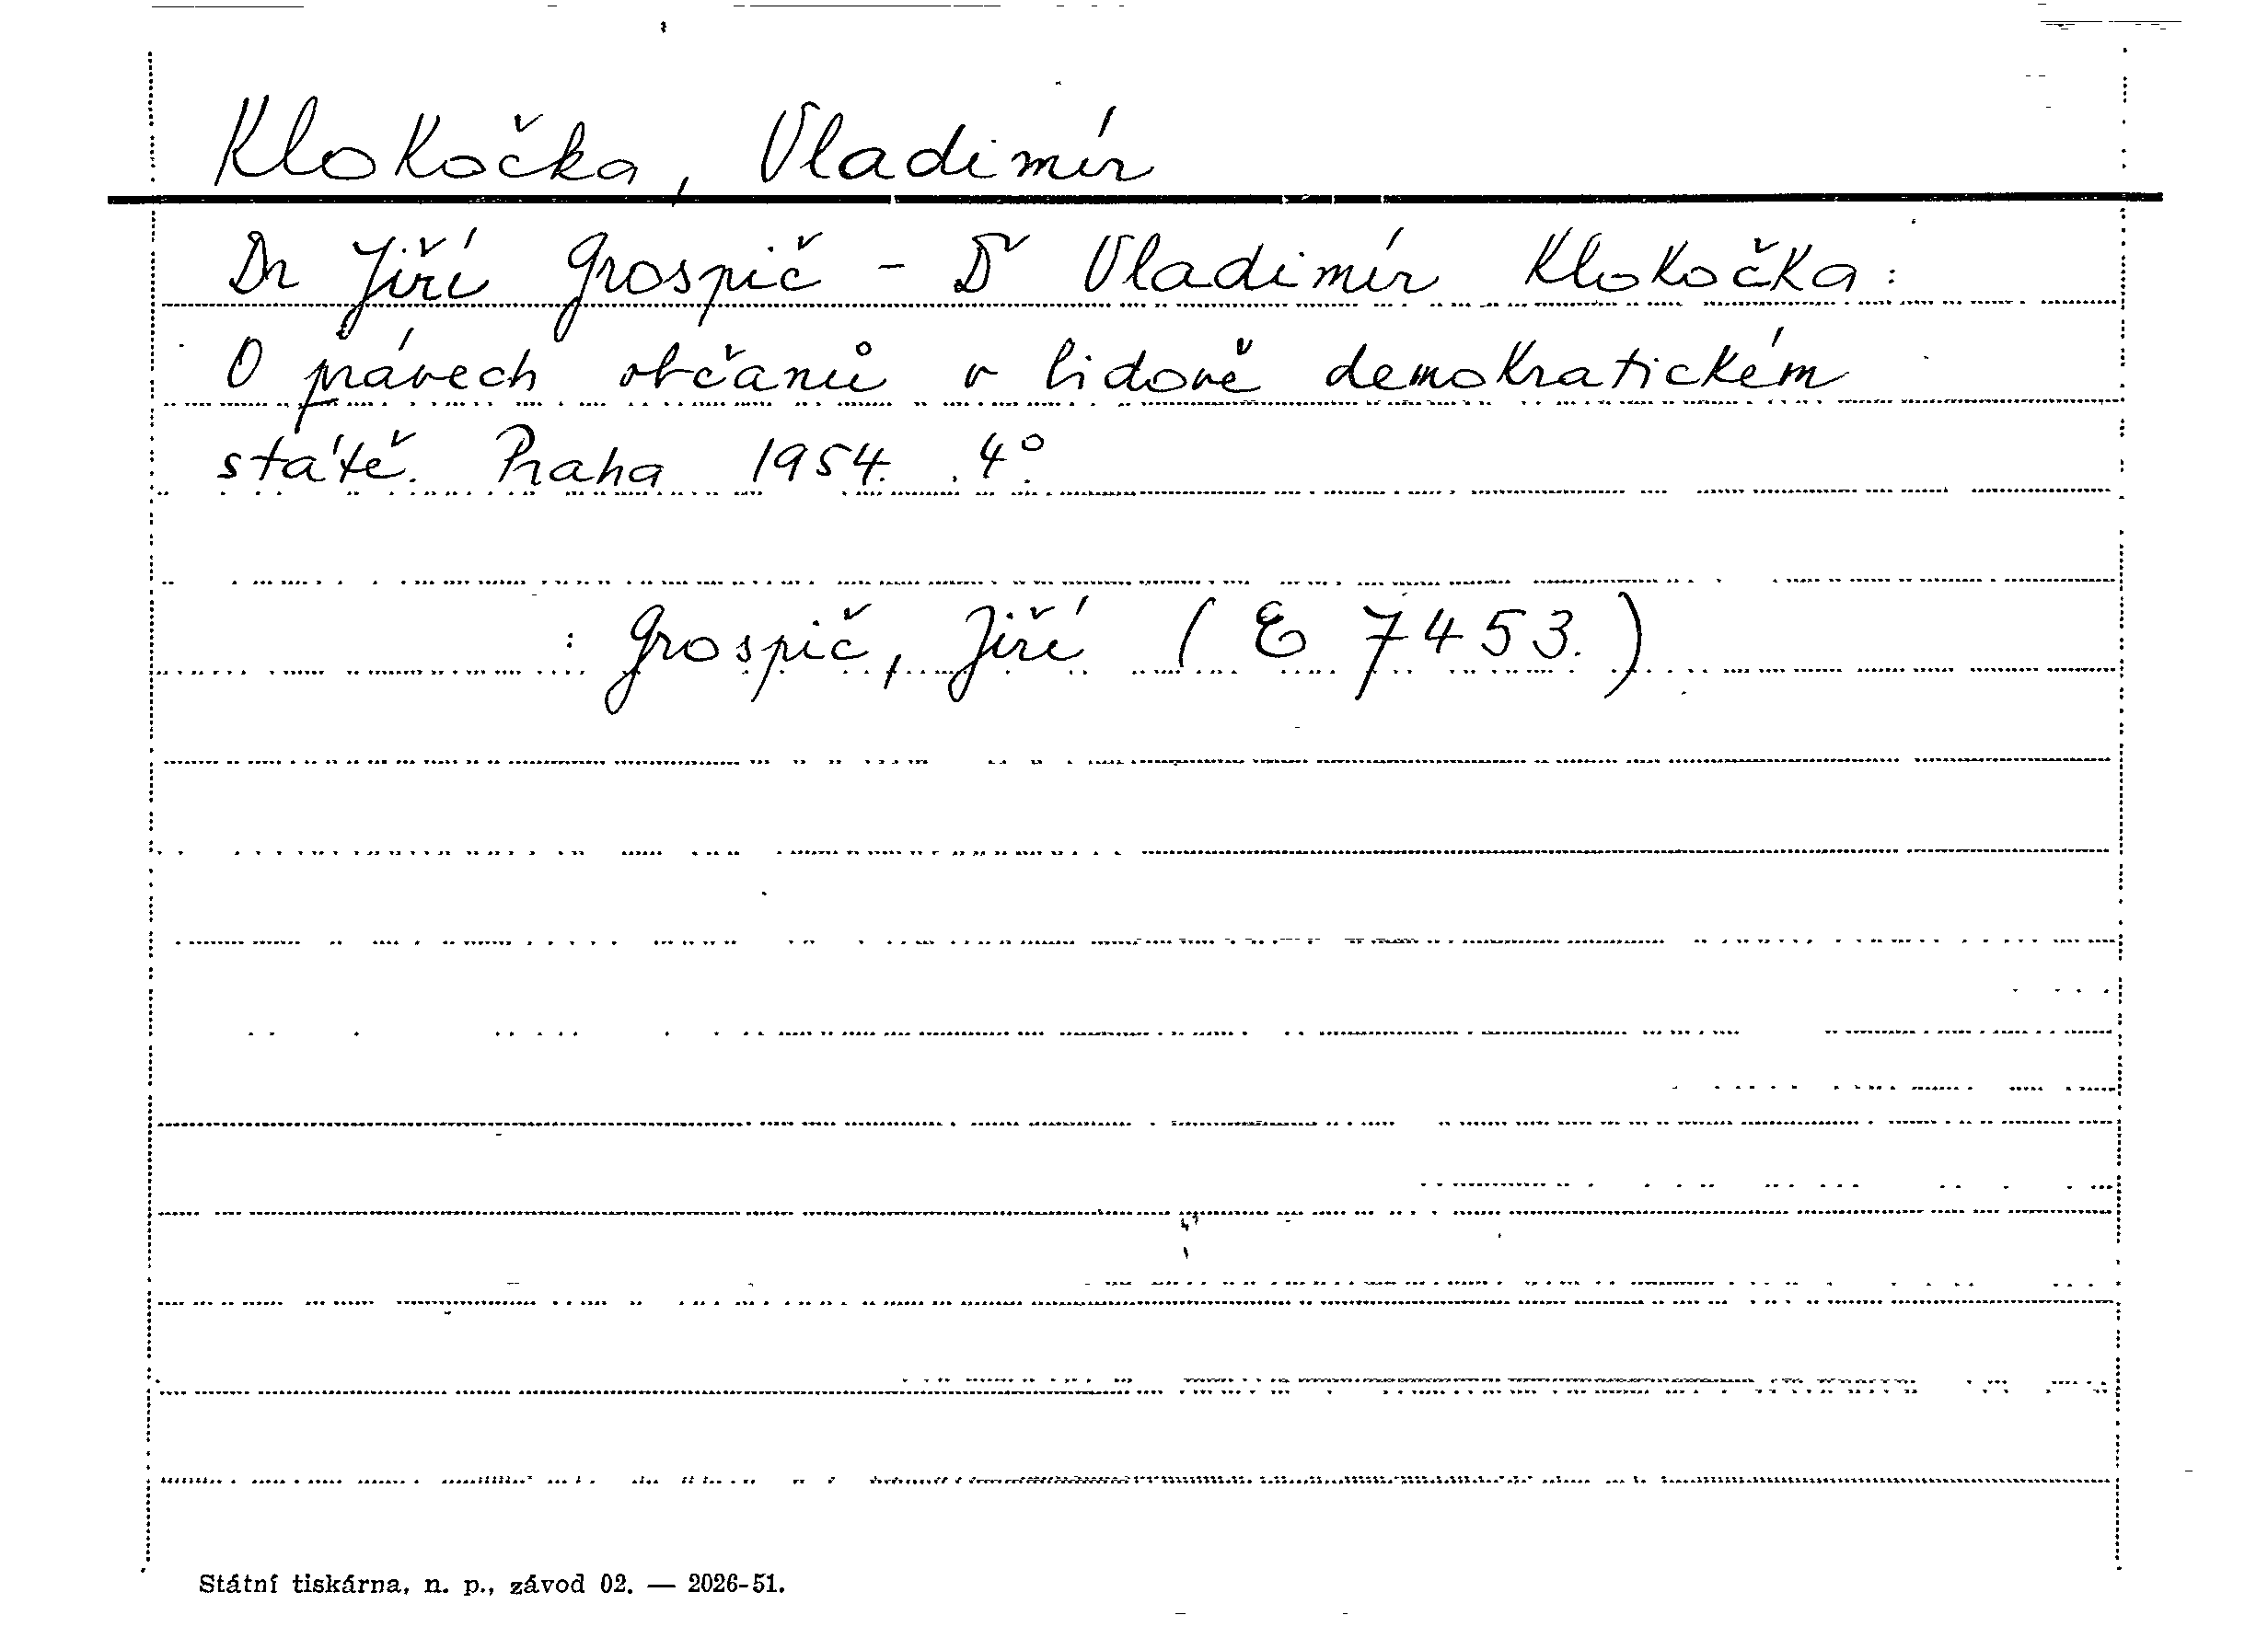 Klokočka, Vladimír
Dr Jiří Grospič - Dr Vladimír Klokočka:
O právech občanů v lidově demokratickém
státě. Praha 1954. 4°.
: Grospič, Jiří (E 7453.)
Státní tiskárna, n. p., závod 02. — 2026-51.